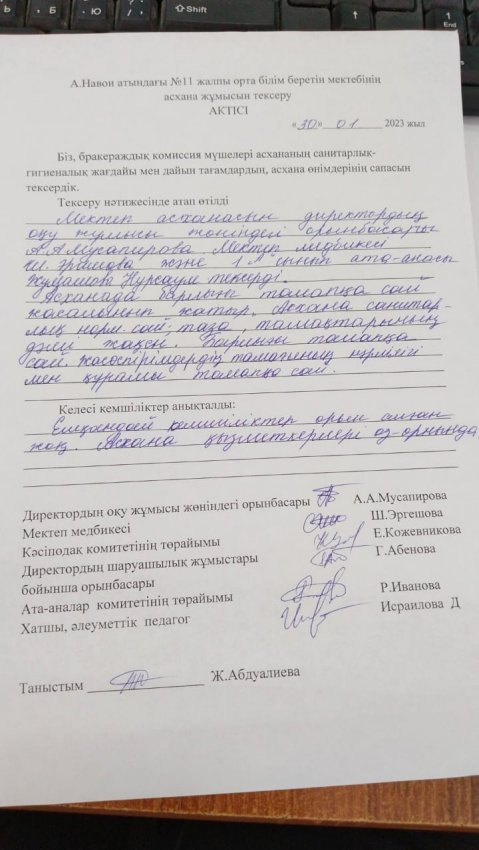 А.Навои атындағы №11 жалпы орта білім беретін мектебінің
асхана жұмысын тексеру
АКТІСІ
«30» 01 2023 жыл
Біз, бракераждық комиссия мүшелері асхананың санитарлық-
гигиеналық жағдайы мен дайын тағамдардың, асхана өнімдерінің сапасын
тексердік.
Тексеру нәтижесінде атап өтілді
Мектеп асханасын директордың
оқу жұмысы жөніндегі орынбасары
А.А.Мусапирова Мектеп медбикесі
Ш. және 1 А сынып ата-анасы
Нурсауле тексерді.
Асханада барлығы талапқа сай
жасалынып жатыр. Асхана санитар-
лық норм. сай, таза, тамақтарының
дәмі жақсы. Барлығы талапқа
сай. Жасөспірімдердің тамағының
мен құрамы талапқа сай.
Келесі кемшіліктер анықталды:
Ешқандай кемшіліктер орын алған
жоқ. Асхана қызметкерлері өз орнында
Директордың оқу жұмысы жөніндегі орынбасары А.А.Мусапирова
Мектеп медбикесі Ш.Эргешова
Кәсіподақ комитетінің төрайымы Е.Кожевникова
Директордың шаруашылық жұмыстары Г.Абенова
бойынша орынбасары
Ата-аналар комитетінің төрайымы Р.Иванова
Хатшы, әлеуметтік педагог Исраилова Д
Таныстым Ж.Абдуалиева
Shift
Б
Ю
1
End